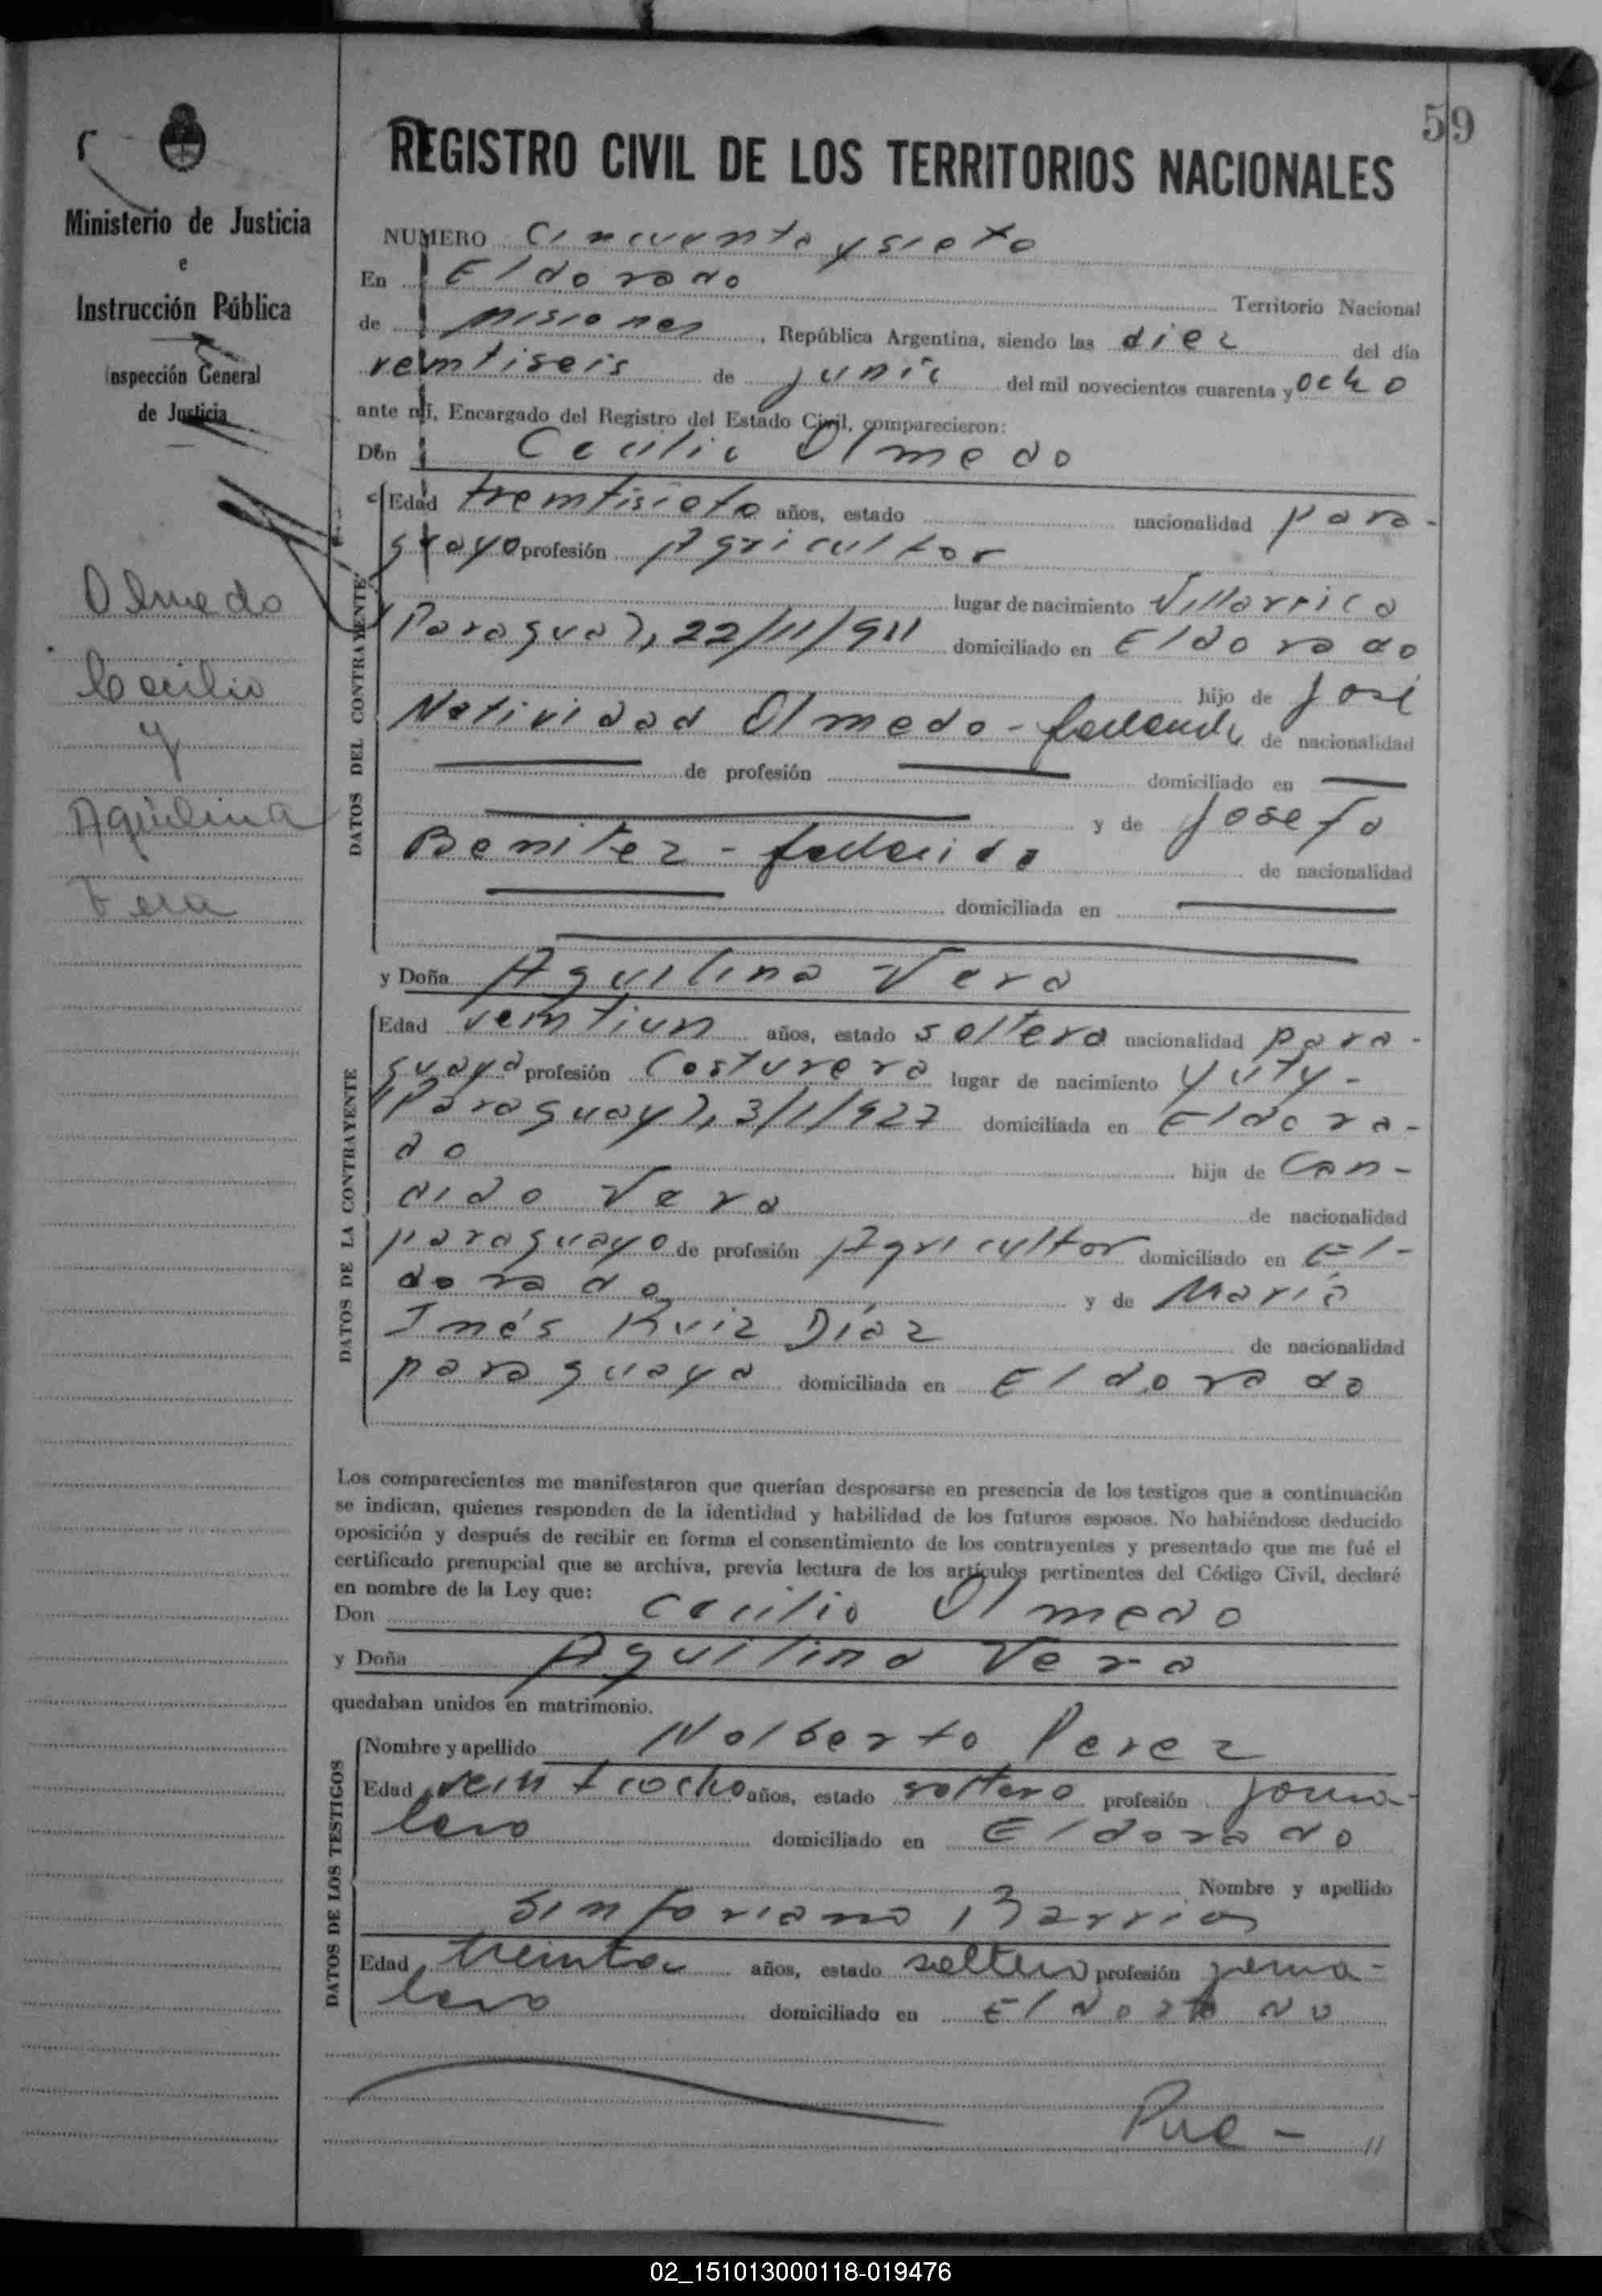 59
Ministerio de Justicia
e
Instrucción Pública
Inspección General
de Justicia
Olmedo
Cecilio
y
Aquilina
Vera
REGISTRO CIVIL DE LOS TERRITORIOS NACIONALES
NUMERO Cincuenta y siete
En Eldorado Territorio Nacional
de Misiones, República Argentina, siendo las diez del día
veintiseis de junio del mil novecientos cuarenta y ocho
ante mí, Encargado del Registro del Estado Civil, comparecieron:
Don Cecilio Olmedo
DATOS DEL CONTRAYENTE
Edad treintisiete años, estado nacionalidad para-
guayo profesión Agricultor
lugar de nacimiento Villarrica
(Paraguay), 22/11/911 domiciliado en Eldorado
hijo de José
Natividad Olmedo - de nacionalidad
de profesión domiciliado en
y de Josefa
Benitez - fallecida de nacionalidad
domiciliada en
y Doña Aquilina Vera
DATOS DE LA CONTRAYENTE
Edad veintiun años, estado soltera nacionalidad para-
guaya profesión Costurera lugar de nacimiento Yuty-
(Paraguay), 3/1/927 domiciliada en Eldora-
do hija de Can-
dido Vera de nacionalidad
paraguayo de profesión Agricultor domiciliado en El-
dorado y de María
Inés Ruiz Díaz de nacionalidad
paraguaya domiciliada en Eldorado
Los comparecientes me manifestaron que querían desposarse en presencia de los testigos que a continuación
se indican, quienes responden de la identidad y habilidad de los futuros esposos. No habiéndose deducido
oposición y después de recibir en forma el consentimiento de los contrayentes y presentado que me fué el
certificado prenupcial que se archiva, previa lectura de los artículos pertinentes del Código Civil, declaré
en nombre de la Ley que:
Don Cecilio Olmedo
y Doña Aquilina Vera
quedaban unidos en matrimonio.
DATOS DE LOS TESTIGOS
Nombre y apellido Nolberto Perez
Edad veintiocho años, estado soltero profesión jorna-
lero domiciliado en Eldorado
Nombre y apellido
Sinforiano Barrios
Edad treinta años, estado soltero profesión jorna-
lero domiciliado en Eldorado
Pue - //
02_151013000118-019476